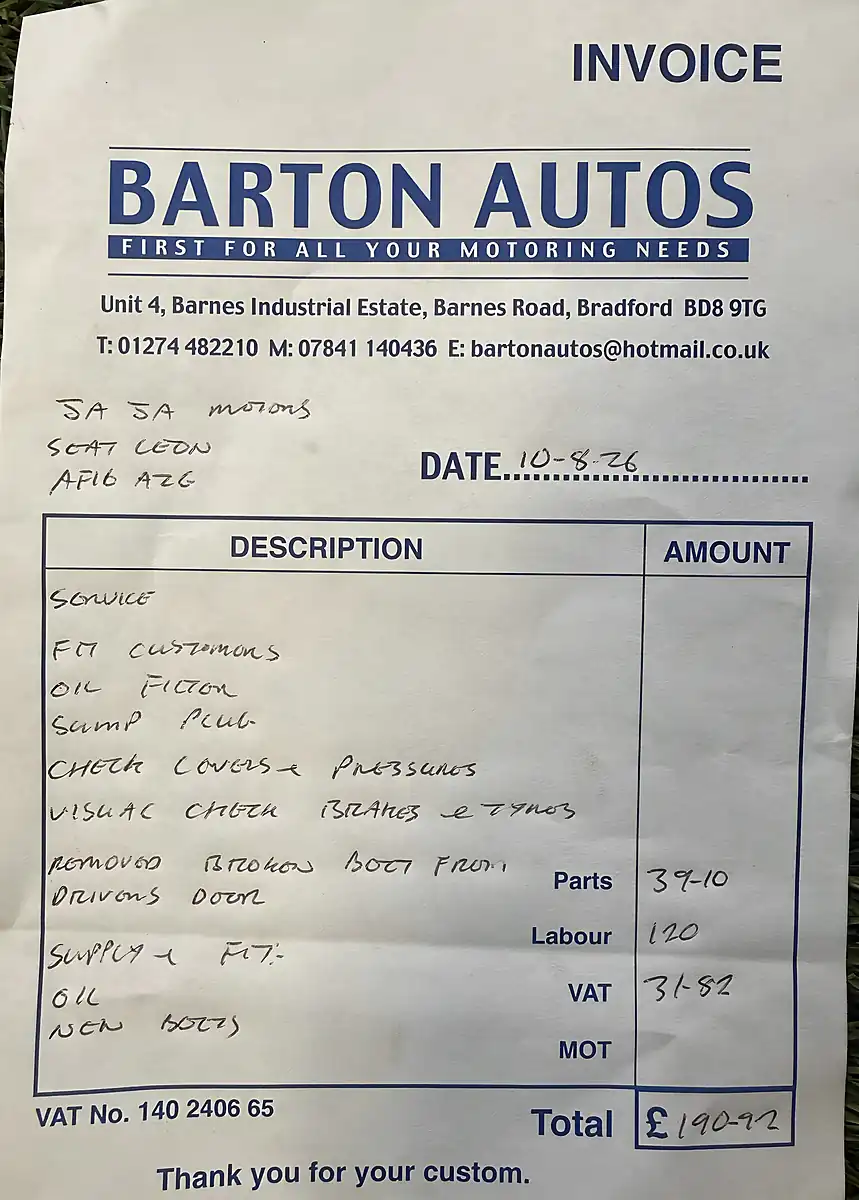 INVOICE
BARTON AUTOS
FIRST FOR ALL YOUR MOTORING NEEDS
Unit 4, Barnes Industrial Estate, Barnes Road, Bradford BD8 9TG
T: 01274 482210 M: 07841 140436 E: bartonautos@hotmail.co.uk
JA JA MOTORS
SEAT LEON
AF16 AZG
DATE 10-8-26
DESCRIPTION AMOUNT
SERVICE
FIT CUSTOMERS
OIL FILTER
SUMP PLUG
CHECK LEVELS & PRESSURES
VISUAL CHECK BRAKES & TYRES
REMOVED BROKEN BOLT FROM
DRIVERS DOOR
Parts 39-10
Labour 120
SUPPLY & FIT:-
OIL
VAT 31-82
NEW BOLTS
MOT
VAT No. 140 2406 65
Total £ 190-92
Thank you for your custom.